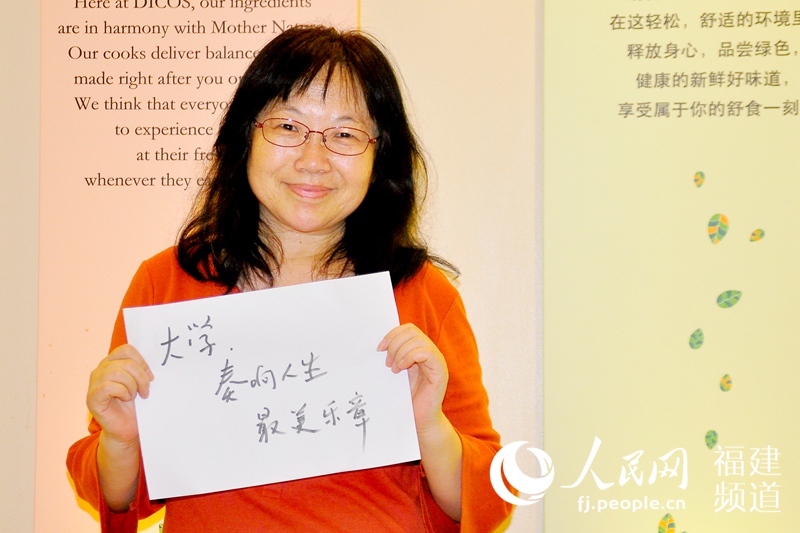 Here at DICOS, our ingredients
are in harmony with Mother
Our cooks deliver
made right after you
We think that
to experience
at their
whenever they
在这轻松，舒适的环境里
释放身心，品尝绿色，
健康的新鲜好味道，
享受属于你的舒食一刻
大学.
奏响人生
最美乐章
人民网
fj.people.cn
福建
频道